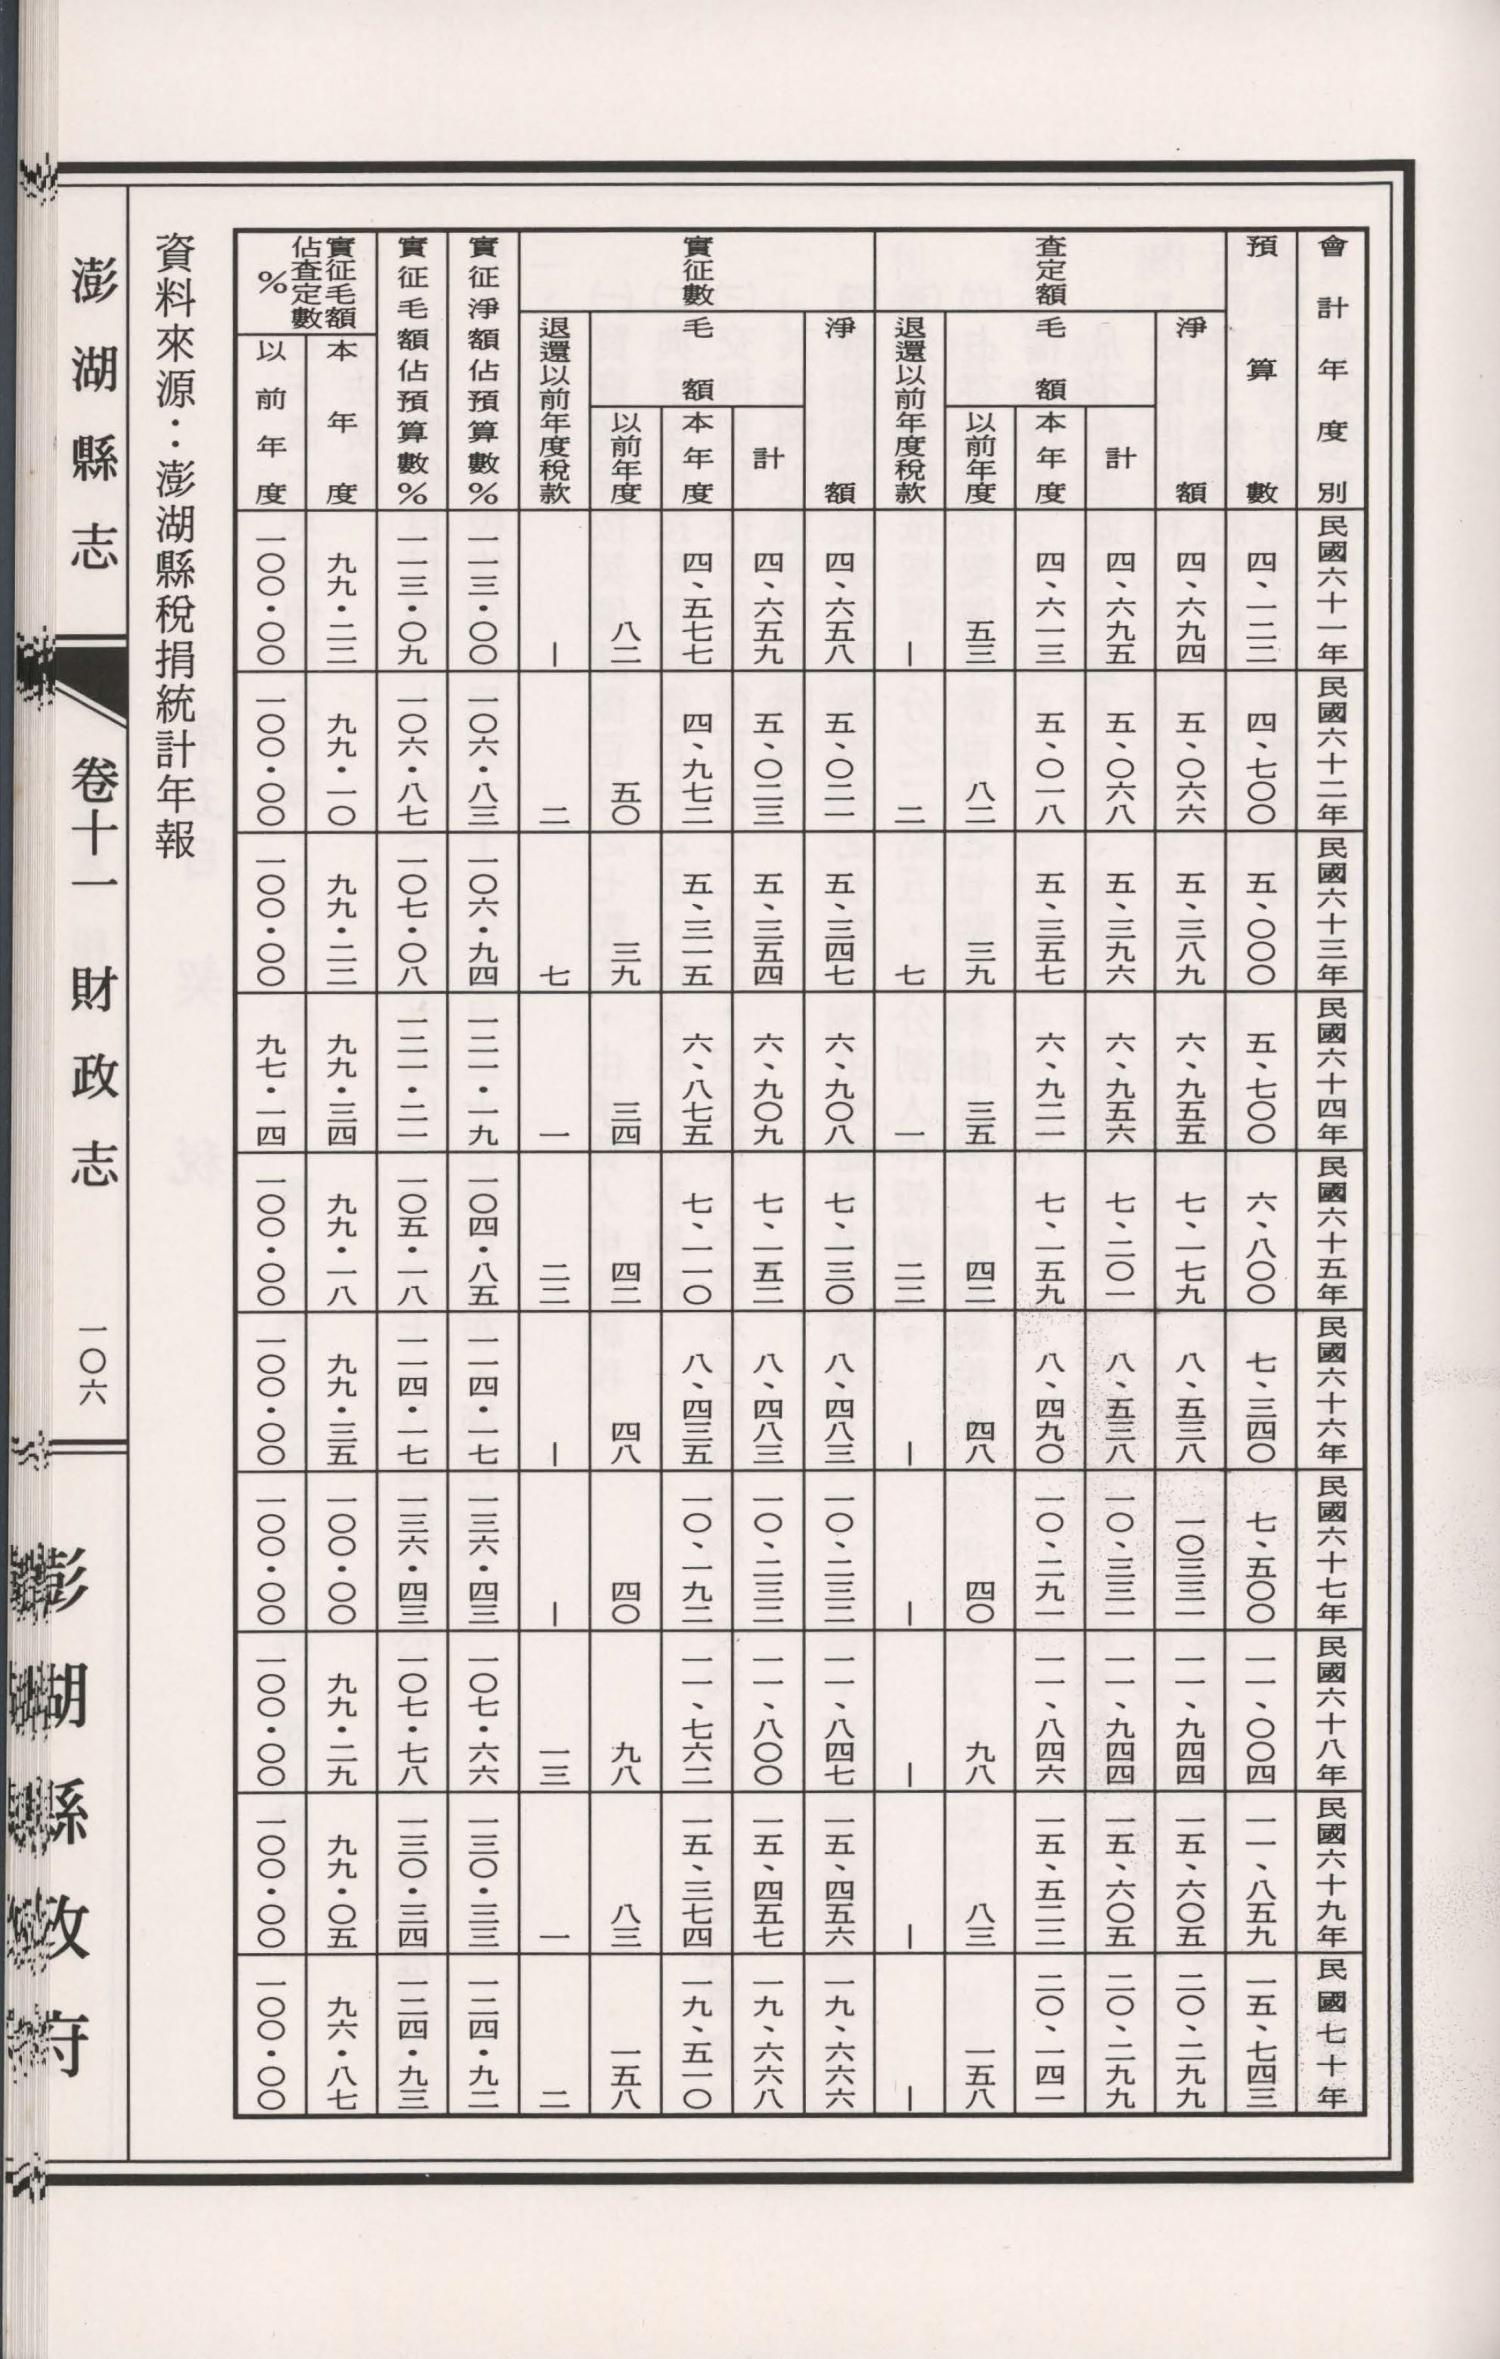 會計年度別 民國六十一年 民國六十二年 民國六十三年 民國六十四年 民國六十五年 民國六十六年 民國六十七年 民國六十八年 民國六十九年 民國七十年
預算數 四、一二二 四、七〇〇 五、〇〇〇 五、七〇〇 六、八〇〇 七、三四〇 七、五〇〇 一一、〇〇四 一一、八五九 一五、七四三
查定額
淨額 四、六九四 五、〇六六 五、三八九 六、九五五 七、一七九 八、五三八 一〇三三一 一一、九四四 一五、六〇五 二〇、二九九
毛額
計 四、六九五 五、〇六八 五、三九六 六、九五六 七、二〇一 八、五三八 一〇、三三一 一一、九四四 一五、六〇五 二〇、二九九
本年度 四、六一三 五、〇一八 五、三五七 六、九二一 七、一五九 八、四九〇 一〇、二九一 一一、八四六 一五、五二二 二〇、一四一
以前年度 五三 八二 三九 三五 四二 四八 四〇 九八 八三 一五八
退還以前年度稅款 — 二 七 一 二二 — — — — —
實征數
淨額 四、六五八 五、〇二一 五、三四七 六、九〇八 七、一三〇 八、四八三 一〇、二三二 一一、八四七 一五、四五六 一九、六六六
毛額
計 四、六五九 五、〇二三 五、三五四 六、九〇九 七、一五二 八、四八三 一〇、二三二 一一、八〇〇 一五、四五七 一九、六六八
本年度 四、五七七 四、九七二 五、三一五 六、八七五 七、一一〇 八、四三五 一〇、一九二 一一、七六二 一五、三七四 一九、五一〇
以前年度 八二 五〇 三九 三四 四二 四八 四〇 九八 八三 一五八
退還以前年度稅款 — 二 七 一 二二 — — 一三 一 二
實征淨額佔預算數% 一一三・〇〇 一〇六・八三 一〇六・九四 一二一・一九 一〇四・八五 一一四・一七 一三六・四三 一〇七・六六 一三〇・三三 一二四・九二
實征毛額佔預算數% 一一三・〇九 一〇六・八七 一〇七・〇八 一二一・二一 一〇五・一八 一一四・一七 一三六・四三 一〇七・七八 一三〇・三四 一二四・九三
實征毛額佔查定數%
本年度 九九・二二 九九・一〇 九九・二二 九九・三四 九九・一八 九九・三五 一〇〇・〇〇 九九・二九 九九・〇五 九六・八七
以前年度 一〇〇・〇〇 一〇〇・〇〇 一〇〇・〇〇 九七・一四 一〇〇・〇〇 一〇〇・〇〇 一〇〇・〇〇 一〇〇・〇〇 一〇〇・〇〇 一〇〇・〇〇
資料來源：澎湖縣稅捐統計年報
澎湖縣志
卷十一 財政志
一〇六
澎湖縣政府